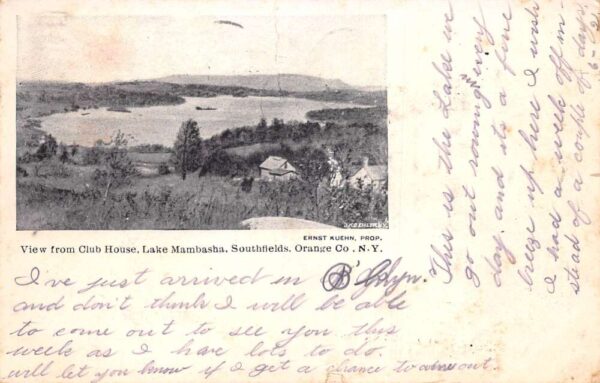 ERNST KUEHN, PROP.
View from Club House, Lake Mambasha, Southfields, Orange Co. N.Y.
I've just arrived in B'klyn.
and don't think I will be able
to come out to see you this
week as I have lots to do.
will let you know if I get a chance to come out.
This is the Lake we
go out rowing every
day, and its a fine
breeze up here I wish
I had a week off in-
stead of a couple of days.